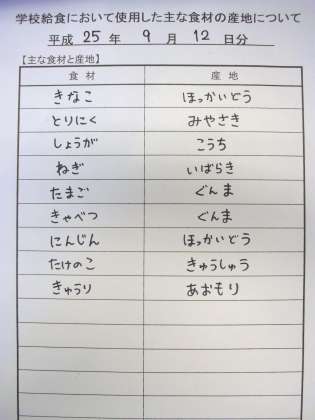 学校給食において使用した主な食材の産地について
平成 25 年 9 月 12 日分
【主な食材と産地】
食材 産地
きなこ ほっかいどう
とりにく みやさき
しょうが こうち
ねぎ いばらき
たまご ぐんま
きゃべつ ぐんま
にんじん ほっかいどう
たけのこ きゅうしゅう
きゅうり あおもり